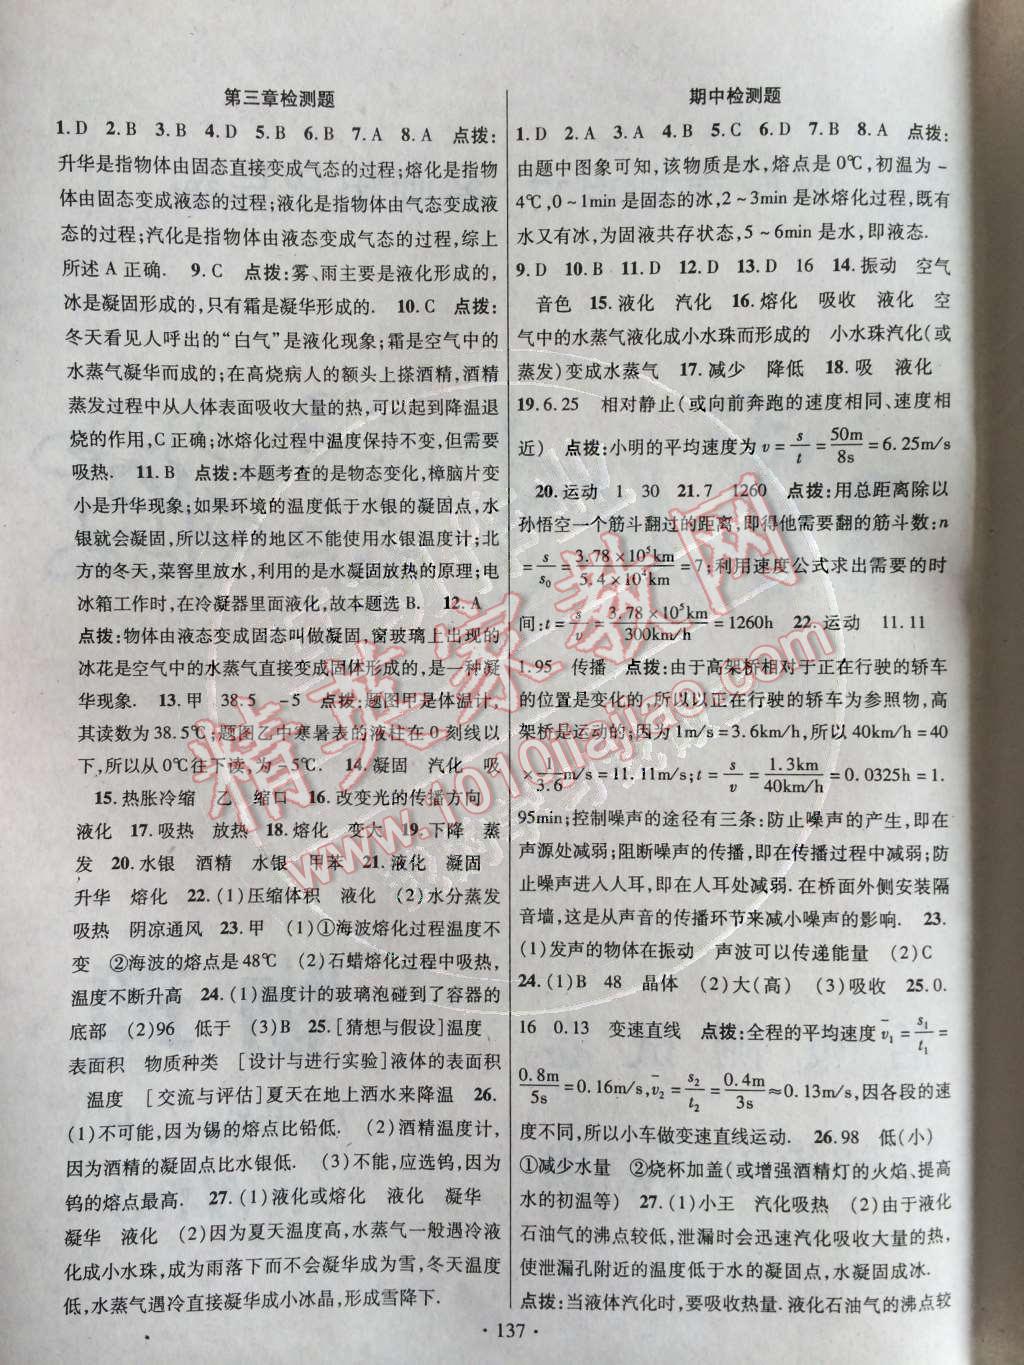 第三章检测题
1.D 2.B 3.B 4.D 5.B 6.B 7.A 8.A 点拨:
升华是指物体由固态直接变成气态的过程;熔化是指物
体由固态变成液态的过程;液化是指物体由气态变成液
态的过程;汽化是指物体由液态变成气态的过程,综上
所述 A 正确. 9.C 点拨:雾、雨主要是液化形成的,
冰是凝固形成的,只有霜是凝华形成的. 10.C 点拨:
冬天看见人呼出的“白气”是液化现象;霜是空气中的
水蒸气凝华而成的;在高烧病人的额头上搽酒精,酒精
蒸发过程中从人体表面吸收大量的热,可以起到降温退
烧的作用,C 正确;冰熔化过程中温度保持不变,但需要
吸热. 11.B 点拨:本题考查的是物态变化,樟脑片变
小是升华现象;如果环境的温度低于水银的凝固点,水
银就会凝固,所以这样的地区不能使用水银温度计;北
方的冬天,菜窖里放水,利用的是水凝固放热的原理;电
冰箱工作时,在冷凝器里面液化,故本题选 B. 12.A
点拨:物体由液态变成固态叫做凝固,窗玻璃上出现的
冰花是空气中的水蒸气直接变成固体形成的,是一种凝
华现象. 13.甲 38.5 -5 点拨:题图甲是体温计,
其读数为 38.5℃;题图乙中寒暑表的液柱在 0 刻线以
下,所以从 0℃往下读,为-5℃. 14.凝固 汽化 吸
15.热胀冷缩 乙 缩口 16.改变光的传播方向
液化 17.吸热 放热 18.熔化 变大 19.下降 蒸
发 20.水银 酒精 水银 甲苯 21.液化 凝固
升华 熔化 22.(1)压缩体积 液化 (2)水分蒸发
吸热 阴凉通风 23.甲 (1)①海波熔化过程温度不
变 ②海波的熔点是 48℃ (2)石蜡熔化过程中吸热,
温度不断升高 24.(1)温度计的玻璃泡碰到了容器的
底部 (2)96 低于 (3)B 25.[猜想与假设]温度
表面积 物质种类 [设计与进行实验]液体的表面积
温度 [交流与评估]夏天在地上洒水来降温 26.
(1)不可能,因为锡的熔点比铅低. (2)酒精温度计,
因为酒精的凝固点比水银低. (3)不能,应选钨,因为
钨的熔点最高. 27.(1)液化或熔化 液化 凝华
凝华 液化 (2)因为夏天温度高,水蒸气一般遇冷液
化成小水珠,成为雨落下而不会凝华成为雪,冬天温度
低,水蒸气遇冷直接凝华成小冰晶,形成雪降下.
期中检测题
1.D 2.A 3.A 4.B 5.C 6.D 7.B 8.A 点拨:
由题中图象可知,该物质是水,熔点是 0℃,初温为-
4℃,0~1min 是固态的冰,2~3min 是冰熔化过程,既有
水又有冰,为固液共存状态,5~6min 是水,即液态.
9.D 10.B 11.D 12.D 13.D 16 14.振动 空气
音色 15.液化 汽化 16.熔化 吸收 液化 空
气中的水蒸气液化成小水珠而形成的 小水珠汽化(或
蒸发)变成水蒸气 17.减少 降低 18.吸 液化
19.6.25 相对静止(或向前奔跑的速度相同、速度相
近) 点拨:小明的平均速度为 v=s/t=50m/8s=6.25m/s
20.运动 1 30 21.7 1260 点拨:用总距离除以
孙悟空一个筋斗翻过的距离,即得他需要翻的筋斗数:n
=s/s₀=3.78×10⁵km/5.4×10⁴km=7;利用速度公式求出需要的时
间:t=s/v=3.78×10⁵km/300km/h=1260h 22.运动 11.11
1.95 传播 点拨:由于高架桥相对于正在行驶的轿车
的位置是变化的,所以以正在行驶的轿车为参照物,高
架桥是运动的;因为 1m/s=3.6km/h,所以 40km/h=40
×1/3.6m/s=11.11m/s;t=s/v=1.3km/40km/h=0.0325h=1.
95min;控制噪声的途径有三条:防止噪声的产生,即在
声源处减弱;阻断噪声的传播,即在传播过程中减弱;防
止噪声进入人耳,即在人耳处减弱.在桥面外侧安装隔
音墙,这是从声音的传播环节来减小噪声的影响. 23.
(1)发声的物体在振动 声波可以传递能量 (2)C
24.(1)B 48 晶体 (2)大(高) (3)吸收 25.0.
16 0.13 变速直线 点拨:全程的平均速度 v̄₁=s₁/t₁=
0.8m/5s=0.16m/s,v̄₂=s₂/t₂=0.4m/3s≈0.13m/s,因各段的速
度不同,所以小车做变速直线运动. 26.98 低(小)
①减少水量 ②烧杯加盖(或增强酒精灯的火焰、提高
水的初温等) 27.(1)小王 汽化吸热 (2)由于液化
石油气的沸点较低,泄漏时会迅速汽化吸收大量的热,
使泄漏孔附近的温度低于水的凝固点,水凝固成冰.
点拨:当液体汽化时,要吸收热量.液化石油气的沸点较
· 137 ·
精英家教网
www.1010jiajiao.com